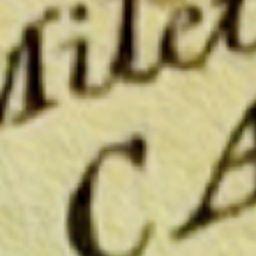 Milet
C A